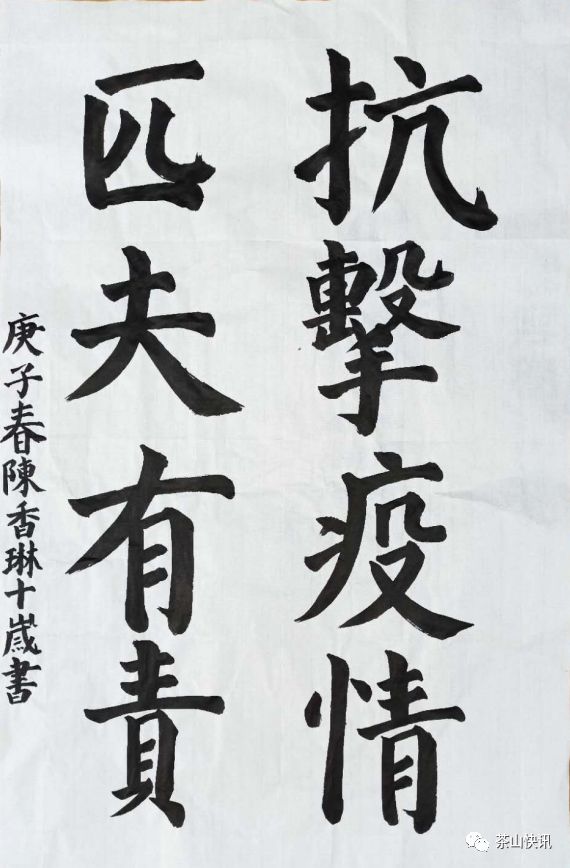 抗擊疫情
匹夫有責
庚子春陳香琳十歲書
茶山快讯